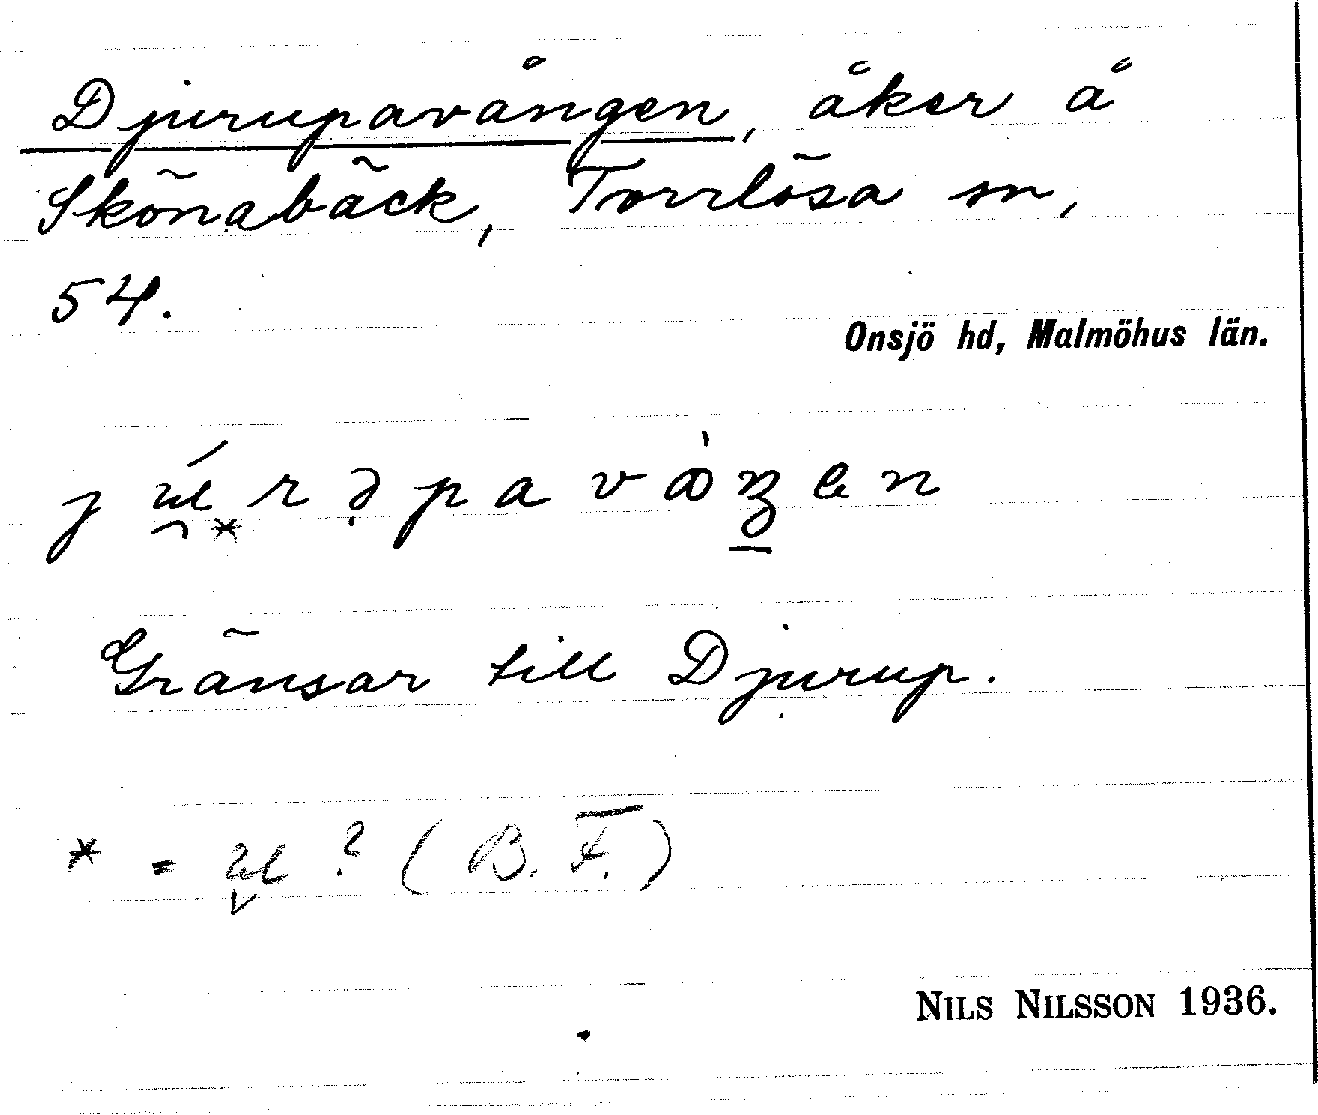 Djurupavången, åker å
Skönabäck, Torrlösa sn,
54.
Onsjö hd, Malmöhus län.
j ú̯* r ə p a v å̀ ŋ e n
Gränsar till Djurup.
* = u̬ ? (B. F.)
NILS NILSSON 1936.